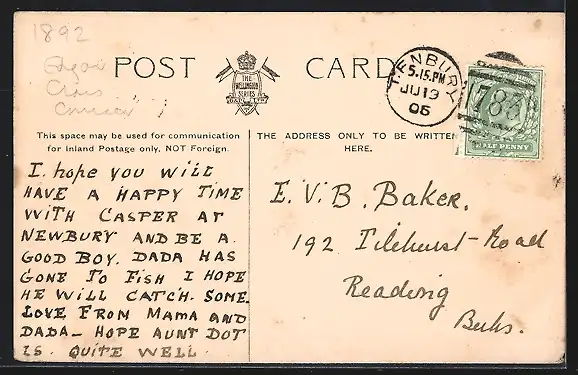 1892
POST CARD
THE
WELLINGTON
SERIES
TENBURY
5.15.PM
JU 19
05
785
HALF PENNY
This space may be used for communication
for Inland Postage only, NOT Foreign.
THE ADDRESS ONLY TO BE WRITTEN
HERE.
I hope you will
HAVE A HAPPY TIME
WITH CASPER AT
NEWBURY AND BE A
GOOD BOY. DADA HAS
GONE TO FISH I HOPE
HE WILL CATCH. SOME.
LOVE FROM MAMA AND
DADA - HOPE AUNT DOT
IS. QUITE WELL.
E. V. B. Baker.
192 Tilehurst-Road
Reading
Berks.